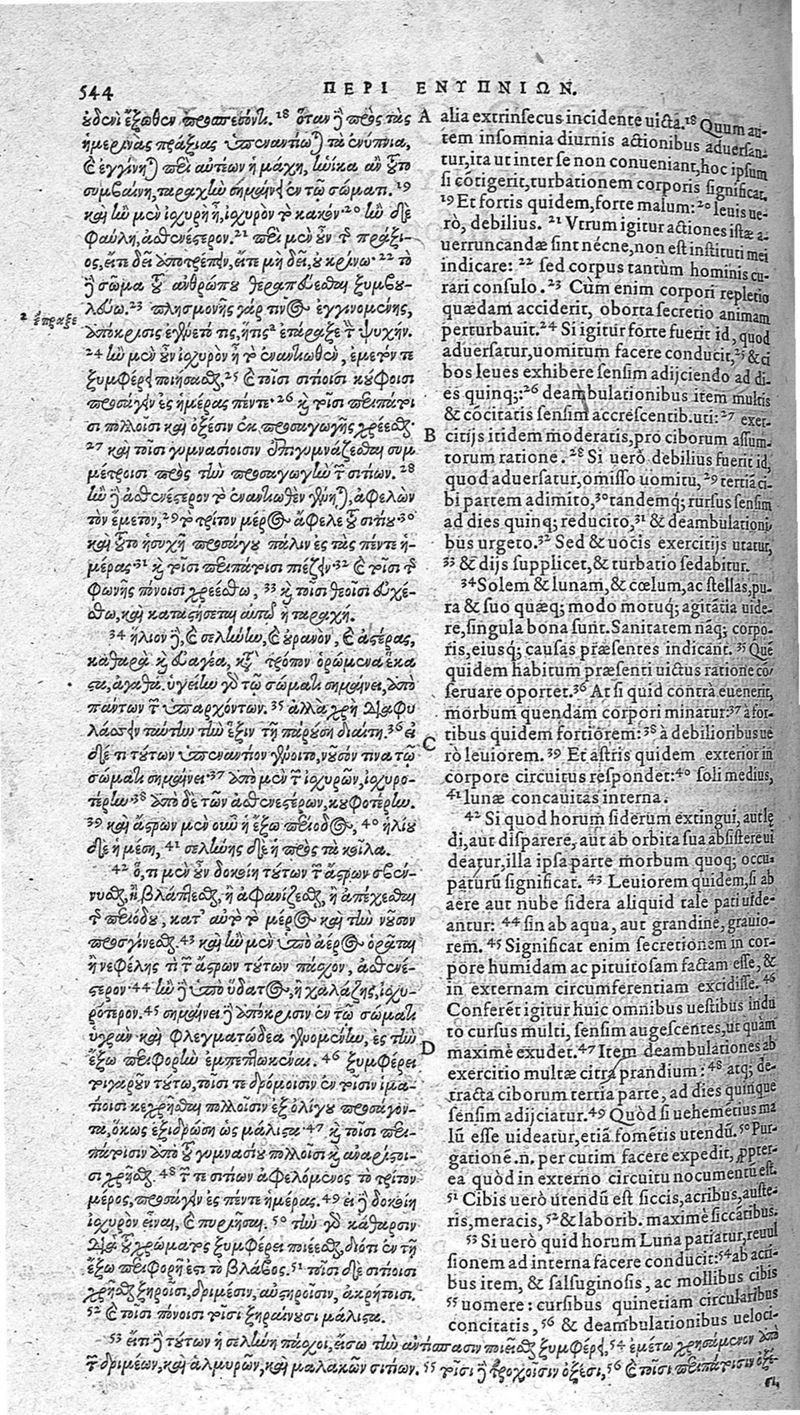 544
ΠΕΡΙ ΕΝΥΠΝΙΩΝ.
οὐδενὶ ἔξωθεν προσπεσόντι. 18 ὅταν δὲ πρὸς τὰς
ἡμερινὰς πράξιας ὑπεναντιῶται τὰ ἐνύπνια,
καὶ ἐγγίνηται περὶ αὐτέων ἢ μάχη, ἡνίκα ἂν τοῦτο
συμβαίνη, ταραχὴν σημαίνει ἐν τῷ σώματι. 19
καὶ ἢν μὲν ἰσχυρὴ ᾖ, ἰσχυρὸν τὸ κακόν· 20 ἢν δὲ
φαύλη, ἀσθενέστερον. 21 περὶ μὲν οὖν τῆς πράξι-
ος, εἴτε δεῖ ἀποτρέπειν, εἴτε μὴ δεῖ, οὐ κρίνω· 22 τὸ
δὲ σῶμα τοῦ ἀνθρώπου θεραπεύεσθαι ξυμβου-
λεύω. 23 πλησμονῆς γάρ τινος ἐγγινομένης,
2 ἔπραξε
ἀπόκρισις ἐγένετό τις, ἥτις 2 ἐτάραξε τὴν ψυχήν.
24 ἢν μὲν οὖν ἰσχυρὸν ᾖ τὸ ἐναντιωθὲν, ἔμετόν τε
ξυμφέρει ποιήσασθαι, 25 καὶ τοῖσι σιτίοισι κούφοισι
προσάγειν ἐς ἡμέρας πέντε· 26 καὶ τοῖσι περιπάτοι
σι πολλοῖσι καὶ ὀξέσιν ἐκ προσαγωγῆς χρέεσθαι·
27 καὶ τοῖσι γυμνασίοισιν ἐπιγυμνάζεσθαι συμ
μέτροισι πρὸς τὴν προσαγωγὴν τῶν σιτίων. 28
ἢν δὲ ἀσθενέστερον τὸ ἐναντιωθὲν γένηται, ἀφελὼν
τὸν ἔμετον, 29 τὸ τρίτον μέρος ἄφελε τοῦ σιτίου· 30
καὶ τοῦτο ἡσυχῆ προσάγου πάλιν ἐς τὰς πέντε ἡ-
μέρας· 31 καὶ τοῖσι περιπάτοισι πιέζειν· 32 καὶ τοῖσι τῆς
φωνῆς πόνοισι χρεέσθω, 33 καὶ τοῖσι θεοῖσι εὐχέ-
σθω, καὶ καταστήσεται αὐτῷ ἡ ταραχή.
34 ἥλιον δὲ, καὶ σελήνην, καὶ οὐρανὸν, καὶ ἀστέρας,
καθαρὰ καὶ εὐαγέα, κατὰ τρόπον ὁρώμενα ἕκα
στα, ἀγαθά. ὑγείην γὰρ τῷ σώματι σημαίνει, ἀπὸ
πάντων τῶν ὑπαρχόντων. 35 ἀλλὰ χρὴ διαφυ
λάσσειν ταύτην τὴν ἕξιν τῇ παρούσῃ διαίτῃ. 36 εἰ
δέ τι τούτων ὑπεναντίον γένοιτο, νοῦσόν τινα τῷ
σώματι σημαίνει· 37 ἀπὸ μὲν τῶν ἰσχυρῶν, ἰσχυρο-
τέρην· 38 ἀπὸ δὲ τῶν ἀσθενεστέρων, κουφοτέρην.
39 καὶ ἄστρων μὲν οὖν ἡ ἔξω περίοδος, 40 ἡλίου
δὲ ἡ μέση, 41 σελήνης δὲ ἡ πρὸς τὰ κοῖλα.
42 ὅ, τι μὲν οὖν δοκοίη τούτων τῶν ἄστρων σβεν-
νύσθαι, ἢ βλάπτεσθαι, ἢ ἀφανίζεσθαι, ἢ ἀπέχεσθαι
τῆς περιόδου, κατ' αὐτὸ τὸ μέρος καὶ τὴν νοῦσον
προσγίνεσθαι. 43 καὶ ἢν μὲν ὑπὸ ἀέρος ὁρᾶται
ἢ νεφέλης τὶ τῶν ἄστρων τούτων πάσχον, ἀσθενέ-
στερον· 44 ἢν δὲ ὑπὸ ὕδατος, ἢ χαλάζης, ἰσχυ-
ρότερον. 45 σημαίνει δὲ ἀπόκρισιν ἐν τῷ σώματι
ὑγρὰν καὶ φλεγματώδεα γενομένην, ἐς τὴν
ἔξω περιφορὴν ἐμπεπτωκέναι. 46 ξυμφέρει
τιγαροῦν τούτω, τοῖσί τε δρόμοισιν ἐν τοῖσιν ἱμα-
τίοισι κεχρῆσθαι πολλοῖσιν ἐξ ὀλίγου προσάγον-
τα, ὅκως ἐξιδρώσῃ ὡς μάλιστα· 47 καὶ τοῖσι περι-
πάτοισιν ἀπὸ τοῦ γυμνασίου πολλοῖσι καὶ ἀναρίστοι-
σι χρῆσθαι. 48 τῶν τε σιτίων ἀφελόμενος τὸ τρίτον
μέρος, προσάγειν ἐς πέντε ἡμέρας. 49 εἰ δὲ δοκοίη
ἰσχυρὸν εἶναι, καὶ πυριῆσαι. 50 τὴν γὰρ κάθαρσιν
διὰ τοῦ χρώματος ξυμφέρει ποιέεσθαι, διότι ἐν τῇ
ἔξω περιφορῇ ἐστι τὸ βλάβος. 51 τοῖσι δὲ σιτίοισι
χρῆσθαι ξηροῖσι, δριμέσιν, αὐστηροῖσιν, ἀκρήτοισι.
52 καὶ τοῖσι πόνοισι τοῖσι ξηραίνουσι μάλιστα.
A alia extrinsecus incidente uicta. 18 Quum au-
tem insomnia diurnis actionibus aduersan-
tur, ita ut inter se non conueniant, hoc ipsum
si cōtigerit, turbationem corporis significat.
19 Et fortis quidem, forte malum: 20 leuis ue-
rò, debilius. 21 Vtrum igitur actiones istæ a-
uerruncandæ sint nécne, non est instituti mei
indicare: 22 sed corpus tantùm hominis cu-
rari consulo. 23 Cùm enim corpori repletio
quædam acciderit, oborta secretio animam
perturbauit. 24 Si igitur forte fuerit id, quod
aduersatur, uomitum facere conducit, 25 & ci
bos leues exhibere sensim adijciendo ad di-
es quinq;: 26 deambulationibus item multis
& cōcitatis sensim accrescentib. uti: 27 exer-
B citijs itidem moderatis, pro ciborum assum-
torum ratione. 28 Si uerò debilius fuerit id,
quod aduersatur, omisso uomitu, 29 tertiā ci-
bi partem adimito, 30 tandemq; rursus sensim
ad dies quinq; reducito, 31 & deambulationi
bus urgeto. 32 Sed & uocis exercitijs utatur,
33 & dijs supplicet, & turbatio sedabitur.
34 Solem & lunam, & cœlum, ac stellas, pu-
ra & suo quæq; modo motuq; agitātia uide-
re, singula bona sunt. Sanitatem nāq; corpo-
ris, eiusq; causas præsentes indicant. 35 Quē
quidem habitum præsenti uictus ratione cō-
seruare oportet. 36 At si quid contrà euenerit,
morbum quendam corpori minatur: 37 à for-
tibus quidem fortiorem: 38 à debilioribus ue
C rò leuiorem. 39 Et astris quidem exterior in
corpore circuitus respondet: 40 soli medius,
41 lunæ concauitas interna.
42 Si quod horum siderum extingui, aut læ
di, aut disparere, aut ab orbita sua absistere ui
deatur, illa ipsa parte morbum quoq; occu-
paturū significat. 43 Leuiorem quidem, si ab
aere aut nube sidera aliquid tale pati uide-
antur: 44 sin ab aqua, aut grandine, grauio-
rem. 45 Significat enim secretionem in cor-
pore humidam ac pituitosam factam esse, &
in externam circumferentiam excidisse. 46
Conferēt igitur huic omnibus uestibus indu
to cursus multi, sensim augescentes, ut quàm
D maximè exudet. 47 Item deambulationes ab
exercitio multæ citra prandium: 48 atq; de-
tracta ciborum tertia parte, ad dies quinque
sensim adijciatur. 49 Quòd si uehemētius ma
lū esse uideatur, etiā fomētis utendū. 50 Pur-
gationē .n. per cutim facere expedit, ppter-
ea quòd in externo circuitu nocumentū est.
51 Cibis uerò utendū est siccis, acribus, auste-
ris, meracis, 52 & laborib. maximè siccātibus.
53 Si uerò quid horum Luna patiatur, reuul
sionem ad interna facere conducit: 54 ab acri-
bus item, & salsuginosis, ac mollibus cibis
55 uomere: cursibus quinetiam circularibus
concitatis, 56 & deambulationibus ueloci-
53 εἴ τι δὲ τούτων ἡ σελήνη πάσχοι, εἴσω τὴν ἀντίσπασιν ποιέεσθαι ξυμφέρει, 54 ἐμέτω χρησάμενον ἀπὸ
τῶν δριμέων, καὶ ἁλμυρῶν, καὶ μαλακῶν σιτίων. 55 τοῖσι δὲ τροχοῖσιν ὀξέσι, 56 καὶ τοῖσι περιπάτοισιν ὀξέ-
σι,